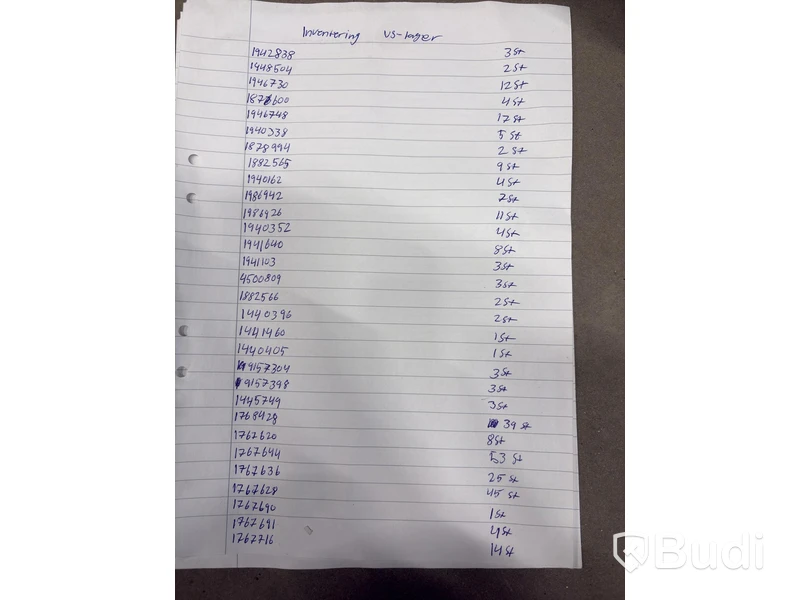 Inventering VS-lager
1942838 3 st
1948504 2 st
1946730 12 st
1871600 4 st
1946748 17 st
1940338 5 st
1878994 2 st
1882565 9 st
1940162 4 st
1986942 2 st
1986926 11 st
1940352 4 st
1941640 8 st
1941103 3 st
4500809 3 st
1882566 2 st
1440396 2 st
1441460 1 st
1440405 1 st
9157304 3 st
9157398 3 st
1445749 3 st
1768428 39 st
1767620 8 st
1767644 53 st
1767636 25 st
1767628 45 st
1767690 1 st
1767691 4 st
1767716 14 st
Budi